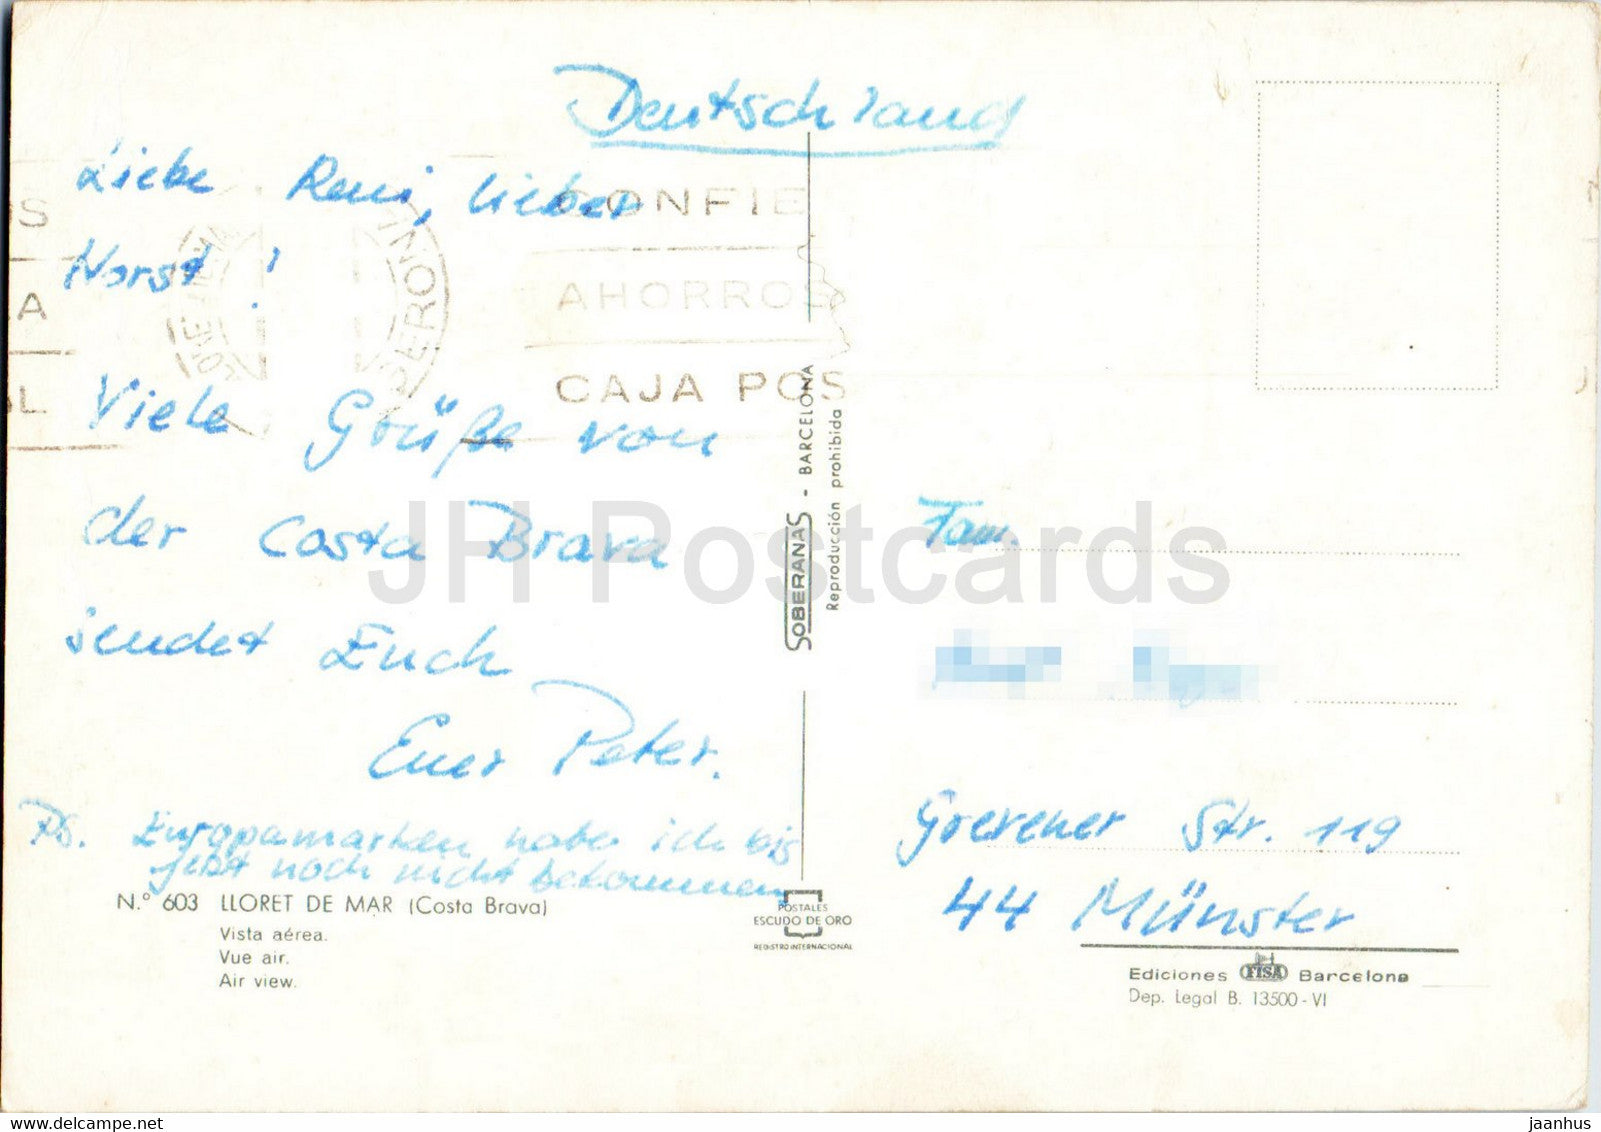 Deutschland
Liebe Reni, lieber
Horst!
Viele Grüße von
der Costa Brava
sendet Euch
Euer Peter.
PS. Europamarken habe ich bis
jetzt noch nicht bekommen
Nº 603 LLORET DE MAR (Costa Brava)
Vista aérea.
Vue air.
Air view.
OS
A
AL
CONFIE
AHORROS
CAJA POS
SOBERANAS - BARCELONA
Reproducción prohibida
POSTALES
ESCUDO DE ORO
REGISTRO INTERNACIONAL
Fam.
Grevener Str. 119
44 Münster
Ediciones FISA Barcelona
Dep. Legal B. 13500-VI
JH Postcards
jaanhus / delcampe.net